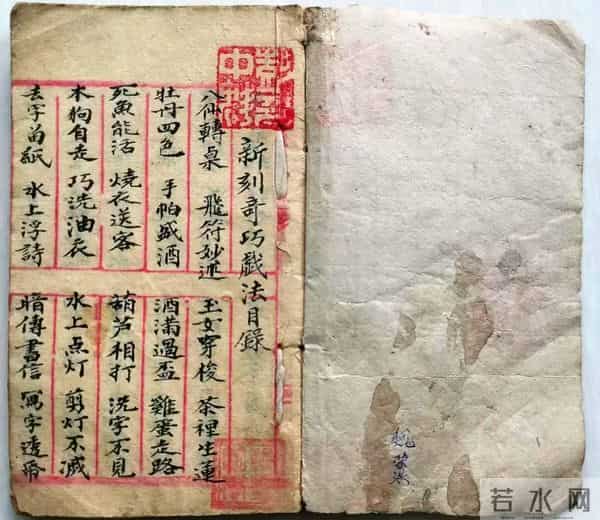 新刻奇巧戲法目錄
八仙轉桌 飛符妙述
牡丹四色 手帕盛酒
死魚能活 燒衣送客
木狗自走 巧洗油衣
去字留紙 水上浮詩
玉女穿梭 茶裡生蓮
酒滿過盃 雞蛋走路
葫芦相打 洗字不見
水上点灯 剪灯不滅
暗傳書信 寫字透
若水网